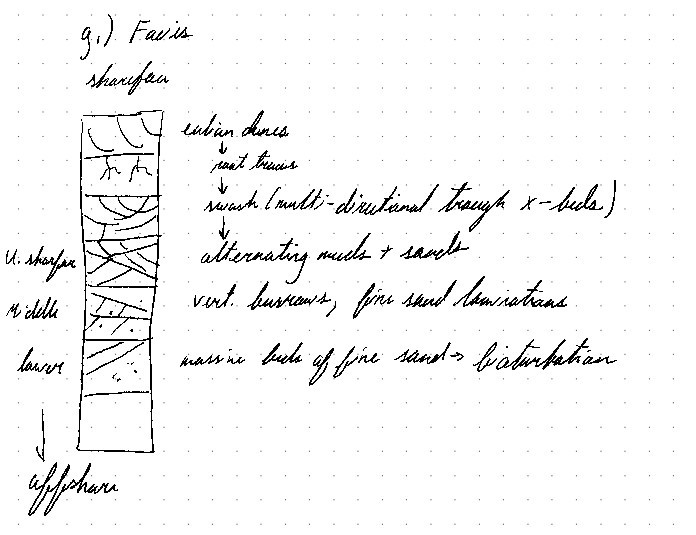 g.) Facis
shoreface
eolian dunes
root traces
swash (multi-directional trough x-beds)
U. shorface
alternating muds + sands
Middle
vert. burrows, fine sand laminations
lower
massive beds of fine sand → bioturbation
offshore